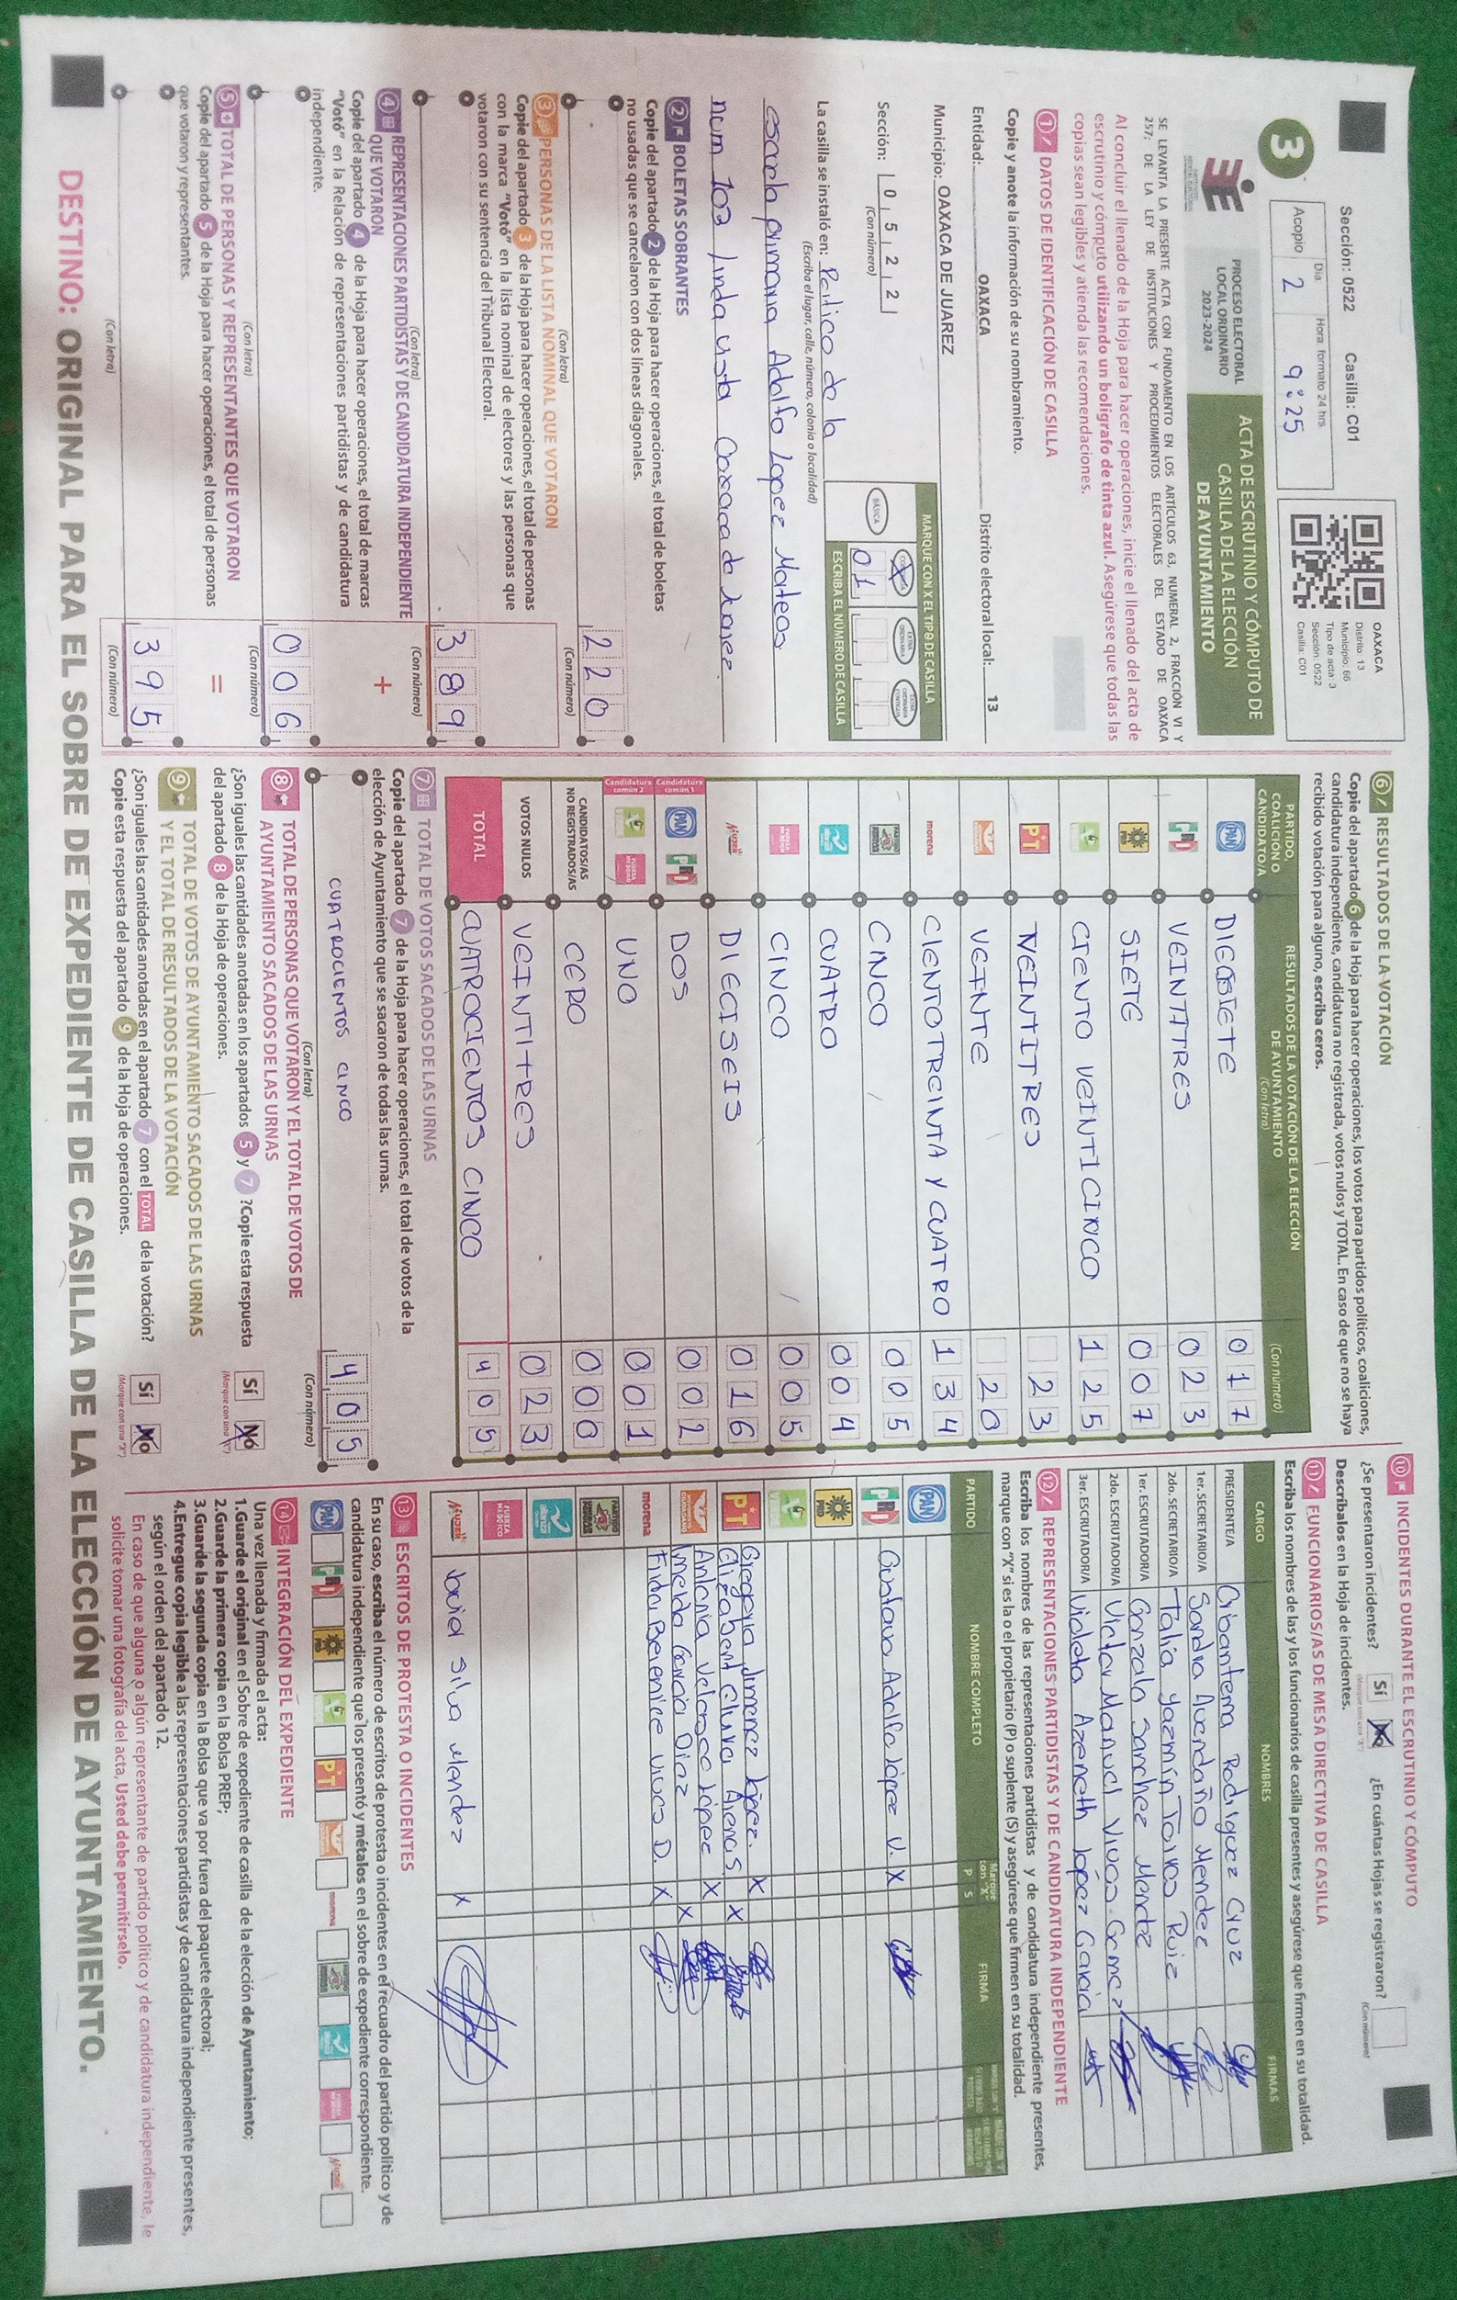 Sección: 0522 Casilla: C01
Día Hora formato 24 hrs.
Acopio 2 9:25
OAXACA
Distrito: 13
Municipio: 66
Tipo de acta: 3
Sección: 0522
Casilla: C01
3
PROCESO ELECTORAL
LOCAL ORDINARIO
2023-2024
ACTA DE ESCRUTINIO Y CÓMPUTO DE
CASILLA DE LA ELECCIÓN
DE AYUNTAMIENTO
SE LEVANTA LA PRESENTE ACTA CON FUNDAMENTO EN LOS ARTÍCULOS 63, NUMERAL 2, FRACCIÓN VI Y
257; DE LA LEY DE INSTITUCIONES Y PROCEDIMIENTOS ELECTORALES DEL ESTADO DE OAXACA
Al concluir el llenado de la Hoja para hacer operaciones, inicie el llenado del acta de
escrutinio y cómputo utilizando un bolígrafo de tinta azul. Asegúrese que todas las
copias sean legibles y atienda las recomendaciones.
1 DATOS DE IDENTIFICACIÓN DE CASILLA
Copie y anote la información de su nombramiento.
Entidad: OAXACA Distrito electoral local: 13
Municipio: OAXACA DE JUAREZ
Sección: 0 5 2 2
(Con número)
MARQUE CON X EL TIPO DE CASILLA
BÁSICA X
ESCRIBA EL NÚMERO DE CASILLA
01
La casilla se instaló en: Portico de la
(Escriba el lugar, calle, número, colonia o localidad)
escuela primaria Adolfo Lopez Mateos
num 103 linda vista Oaxaca de Juarez.
2 BOLETAS SOBRANTES
Copie del apartado 2 de la Hoja para hacer operaciones, el total de boletas
no usadas que se cancelaron con dos líneas diagonales.
220
(Con letra) (Con número)
3 PERSONAS DE LA LISTA NOMINAL QUE VOTARON
Copie del apartado 3 de la Hoja para hacer operaciones, el total de personas
con la marca "Votó" en la lista nominal de electores y las personas que
votaron con su sentencia del Tribunal Electoral.
389
(Con letra) (Con número)
4 REPRESENTACIONES PARTIDISTAS Y DE CANDIDATURA INDEPENDIENTE
QUE VOTARON
+
Copie del apartado 4 de la Hoja para hacer operaciones, el total de marcas
"Votó" en la Relación de representaciones partidistas y de candidatura
independiente.
006
(Con letra) (Con número)
5 TOTAL DE PERSONAS Y REPRESENTANTES QUE VOTARON
=
Copie del apartado 5 de la Hoja para hacer operaciones, el total de personas
que votaron y representantes.
395
(Con letra) (Con número)
6 RESULTADOS DE LA VOTACIÓN
Copie del apartado 6 de la Hoja para hacer operaciones, los votos para partidos políticos, coaliciones,
candidatura independiente, candidatura no registrada, votos nulos y TOTAL. En caso de que no se haya
recibido votación para alguno, escriba ceros.
PARTIDO,
COALICIÓN O
CANDIDATO/A
RESULTADOS DE LA VOTACIÓN DE LA ELECCIÓN
DE AYUNTAMIENTO
(Con letra) (Con número)
PAN DIECISIETE 017
PRI VEINTITRES 023
PRD SIETE 007
CIENTO VEINTICINCO 125
PT VEINTITRES 23
VEINTE 20
morena CIENTOTREINTA Y CUATRO 134
CINCO 005
CUATRO 004
CINCO 005
DIECISEIS 016
Candidatura común 1 PAN PRI DOS 002
Candidatura común 2 UNO 001
CANDIDATOS/AS
NO REGISTRADOS/AS CERO 000
VOTOS NULOS VEINTITRES 023
TOTAL CUATROCIENTOS CINCO 405
7 TOTAL DE VOTOS SACADOS DE LAS URNAS
Copie del apartado 7 de la Hoja para hacer operaciones, el total de votos de la
elección de Ayuntamiento que se sacaron de todas las urnas.
CUATROCIENTOS CINCO 405
(Con letra) (Con número)
8 TOTAL DE PERSONAS QUE VOTARON Y EL TOTAL DE VOTOS DE
AYUNTAMIENTO SACADOS DE LAS URNAS
¿Son iguales las cantidades anotadas en los apartados 5 y 7 ?Copie esta respuesta
del apartado 8 de la Hoja de operaciones.
Sí No
(Marque con una "X")
9 TOTAL DE VOTOS DE AYUNTAMIENTO SACADOS DE LAS URNAS
Y EL TOTAL DE RESULTADOS DE LA VOTACIÓN
¿Son iguales las cantidades anotadas en el apartado 7 con el TOTAL de la votación?
Copie esta respuesta del apartado 9 de la Hoja de operaciones.
Sí No
(Marque con una "X")
10 INCIDENTES DURANTE EL ESCRUTINIO Y CÓMPUTO
¿Se presentaron incidentes? Sí No ¿En cuántas Hojas se registraron?
(Marque con una "X") (Con número)
Descríbalos en la Hoja de incidentes.
11 FUNCIONARIOS/AS DE MESA DIRECTIVA DE CASILLA
Escriba los nombres de las y los funcionarios de casilla presentes y asegúrese que firmen en su totalidad.
CARGO NOMBRES FIRMAS
PRESIDENTE/A Rodriguez Cruz
1er. SECRETARIO/A Sandra Avendaño Mendez
2do. SECRETARIO/A Talia Yazmín Ruiz
1er. ESCRUTADOR/A Gonzalo Sanchez Mendez
2do. ESCRUTADOR/A Victor Manuel Vivas Gomez
3er. ESCRUTADOR/A Violeta Azeneth López García
12 REPRESENTACIONES PARTIDISTAS Y DE CANDIDATURA INDEPENDIENTE
Escriba los nombres de las representaciones partidistas y de candidatura independiente presentes,
marque con "X" si es la o el propietario (P) o suplente (S) y asegúrese que firmen en su totalidad.
PARTIDO NOMBRE COMPLETO Marque con "X" P S FIRMA
PAN
PRI Gustavo Adolfo López V. X
PRD
PT Gregoria Jimenez López. X
Arenas. X
Antonia Velasco López X
Imelda García Diaz X
morena Berenice Vivas D. X
David Silva Mendez X
13 ESCRITOS DE PROTESTA O INCIDENTES
En su caso, escriba el número de escritos de protesta o incidentes en el recuadro del partido político y de
candidatura independiente que los presentó y métalos en el sobre de expediente correspondiente.
14 INTEGRACIÓN DEL EXPEDIENTE
Una vez llenada y firmada el acta:
1.Guarde el original en el Sobre de expediente de casilla de la elección de Ayuntamiento;
2.Guarde la primera copia en la Bolsa PREP;
3.Guarde la segunda copia en la Bolsa que va por fuera del paquete electoral;
4.Entregue copia legible a las representaciones partidistas y de candidatura independiente presentes,
según el orden del apartado 12.
En caso de que alguna o algún representante de partido político y de candidatura independiente, le
solicite tomar una fotografía del acta, Usted debe permitírselo.
DESTINO: ORIGINAL PARA EL SOBRE DE EXPEDIENTE DE CASILLA DE LA ELECCIÓN DE AYUNTAMIENTO.